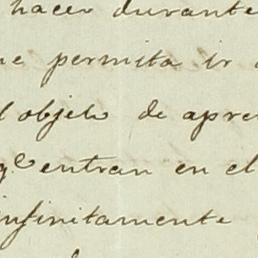 hacer durante
permita ir
objeto de apre
qe entran en el
infinitamente